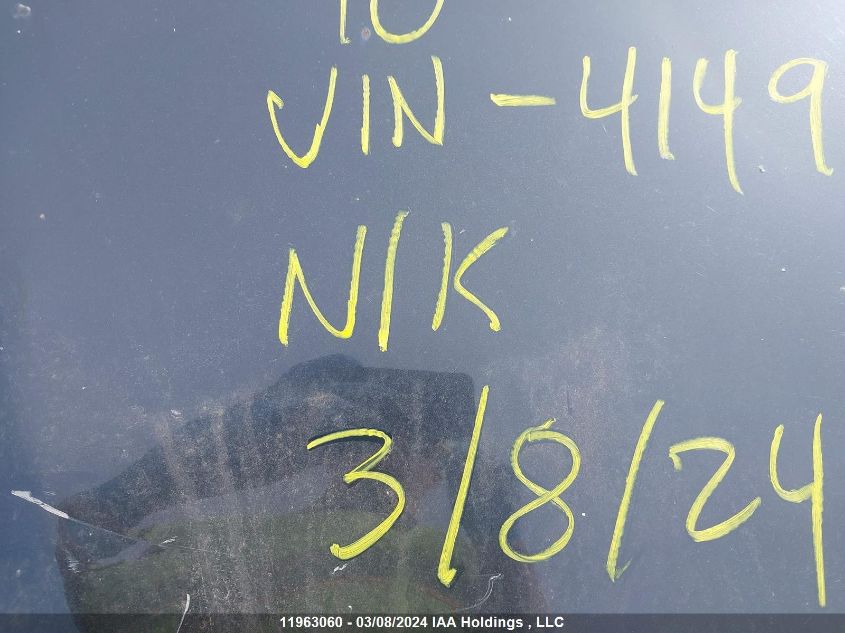 10
VIN - 4149
N/K
3/8/24
11963060 - 03/08/2024 IAA Holdings , LLC